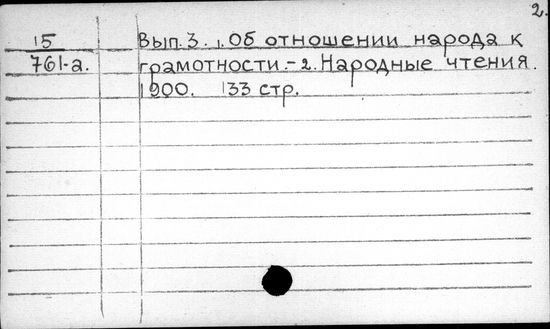 2.
15 Вып. 3. 1. Об отношении народа к
761-а. грамотности. - 2. Народные чтения.
1900. 133 стр.